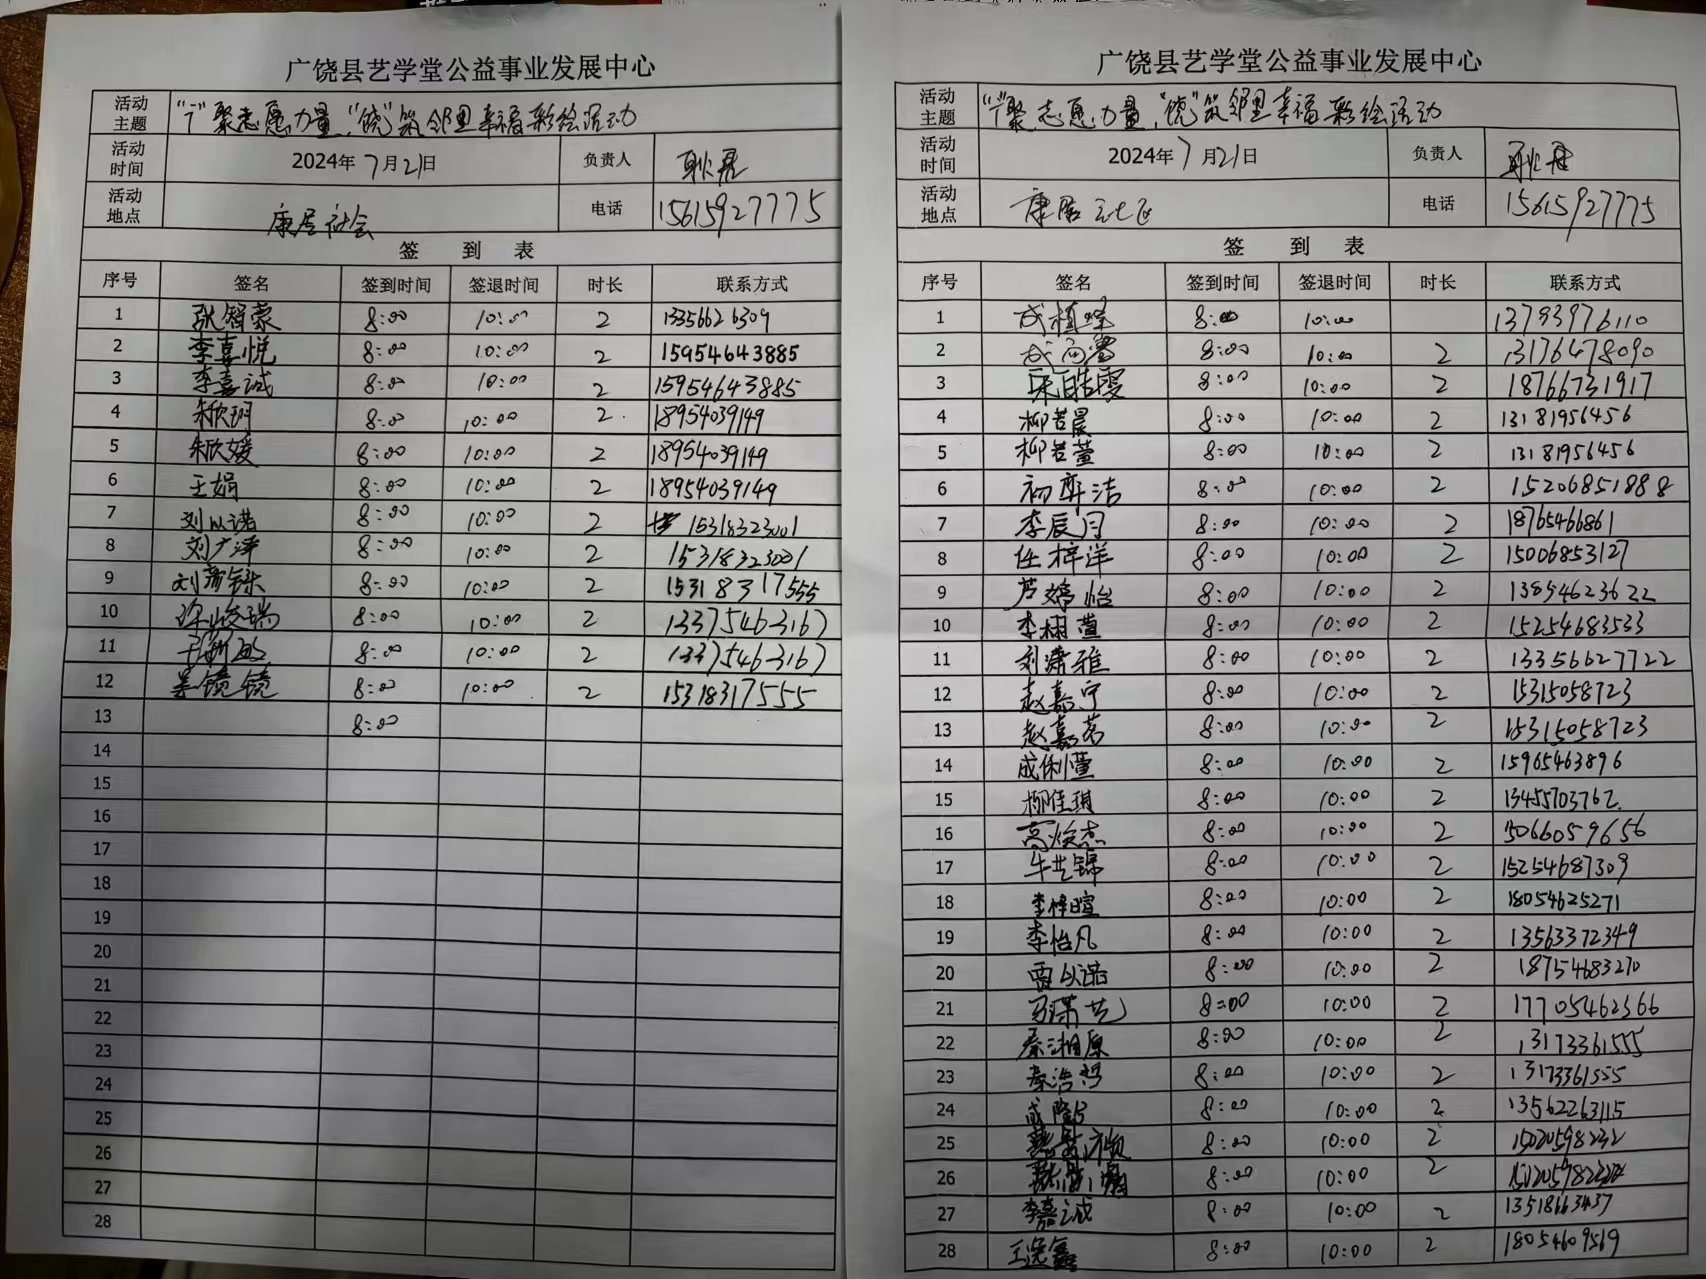 广饶县艺学堂公益事业发展中心
活动主题 "广"聚志愿力量,"饶"筑邻里幸福彩绘活动
活动时间 2024年7月21日 负责人
活动地点 康居社会 电话 15615927775
签 到 表
序号 签名 签到时间 签退时间 时长 联系方式
1 张智蒙 8:00 10:00 2 13356626309
2 李喜悦 8:00 10:00 2 15954643885
3 李喜诚 8:00 10:00 2 15954643885
4 朱欣玥 8:00 10:00 2 18954039149
5 朱欣媛 8:00 10:00 2 18954039149
6 王娟 8:00 10:00 2 18954039149
7 刘以诺 8:00 10:00 2 15318323001
8 刘广泽 8:00 10:00 2 15318323001
9 8:00 10:00 2 15318317555
10 8:00 10:00 2 13375463167
11 8:00 10:00 2 13375463167
12 姜镜镜 8:00 10:00 2 15318317555
13 8:00
14
15
16
17
18
19
20
21
22
23
24
25
26
27
28
广饶县艺学堂公益事业发展中心
活动主题 "广"聚志愿力量,"饶"筑邻里幸福彩绘活动
活动时间 2024年7月21日 负责人
活动地点 康居 电话 15615927775
签 到 表
序号 签名 签到时间 签退时间 时长 联系方式
1 8:00 10:00 13793976110
2 8:00 10:00 2 13176478090
3 宋皓雯 8:00 10:00 2 18766731917
4 柳若晨 8:00 10:00 2 13181956456
5 柳若萱 8:00 10:00 2 13181956456
6 初弈洁 8:00 10:00 2 15206851888
7 李辰月 8:00 10:00 2 18765466861
8 任梓洋 8:00 10:00 2 15006853127
9 芦婷怡 8:00 10:00 2 13854623622
10 李栩萱 8:00 10:00 2 15254683533
11 刘潇雅 8:00 10:00 2 13356627722
12 赵嘉宁 8:00 10:00 2 15315058723
13 赵嘉茗 8:00 10:00 2 15315058723
14 成俐萱 8:00 10:00 2 15965463896
15 柳佳琪 8:00 10:00 2 13455703762
16 高焕杰 8:00 10:00 2 15066059656
17 牛艺锦 8:00 10:00 2 15254687309
18 李梓暄 8:00 10:00 2 18054625271
19 李怡凡 8:00 10:00 2 13563372349
20 贾以诺 8:00 10:00 2 18754683270
21 8:00 10:00 2 17705462366
22 秦湘原 8:00 10:00 2 13173361555
23 8:00 10:00 2 13173361555
24 8:00 10:00 2 13562263115
25 8:00 10:00 2 15020598232
26 8:00 10:00 2
27 李嘉诚 8:00 10:00 2 13518663437
28 王逸鑫 8:00 10:00 2 18054609519